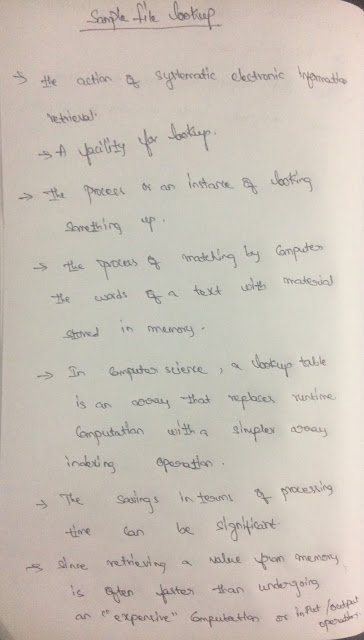 Sample file lookup
→ the action of systematic electronic information
retrieval.
→ A facility for lookup.
→ The process or an instance of looking
something up.
→ the process of matching by computer
the words of a text with material
stored in memory.
→ In computer science, a lookup table
is an array that replaces runtime
computation with a simpler array
indexing operation.
→ The savings in terms of processing
time can be significant
→ since retrieving a value from memory
is often faster than undergoing
an "expensive" computation or input/output
operation.